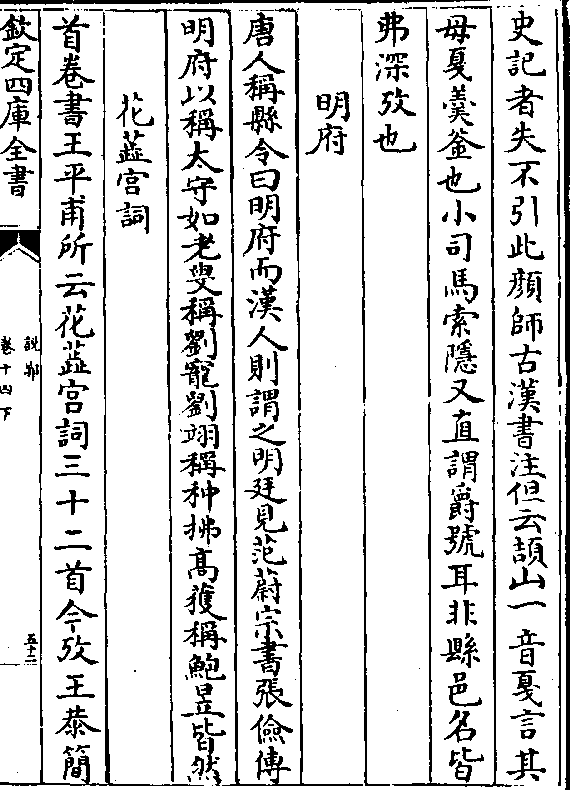 史記者失不引此顔師古漢書注但云頡山一音戞言其
母戞羮釜也小司馬索隱又直謂爵號耳非縣邑名皆
弗深攷也
明府
唐人稱縣令曰明府而漢人則謂之明廷見范蔚宗書張儉傳
明府以稱太守如老叟稱劉寵劉翊稱种拂髙獲稱鮑昱皆然
花蘂宫詞
首卷書王平甫所云花蘂宫詞三十二首今攷王恭簡
欽定四庫全書
說郛
卷十四下
五十二